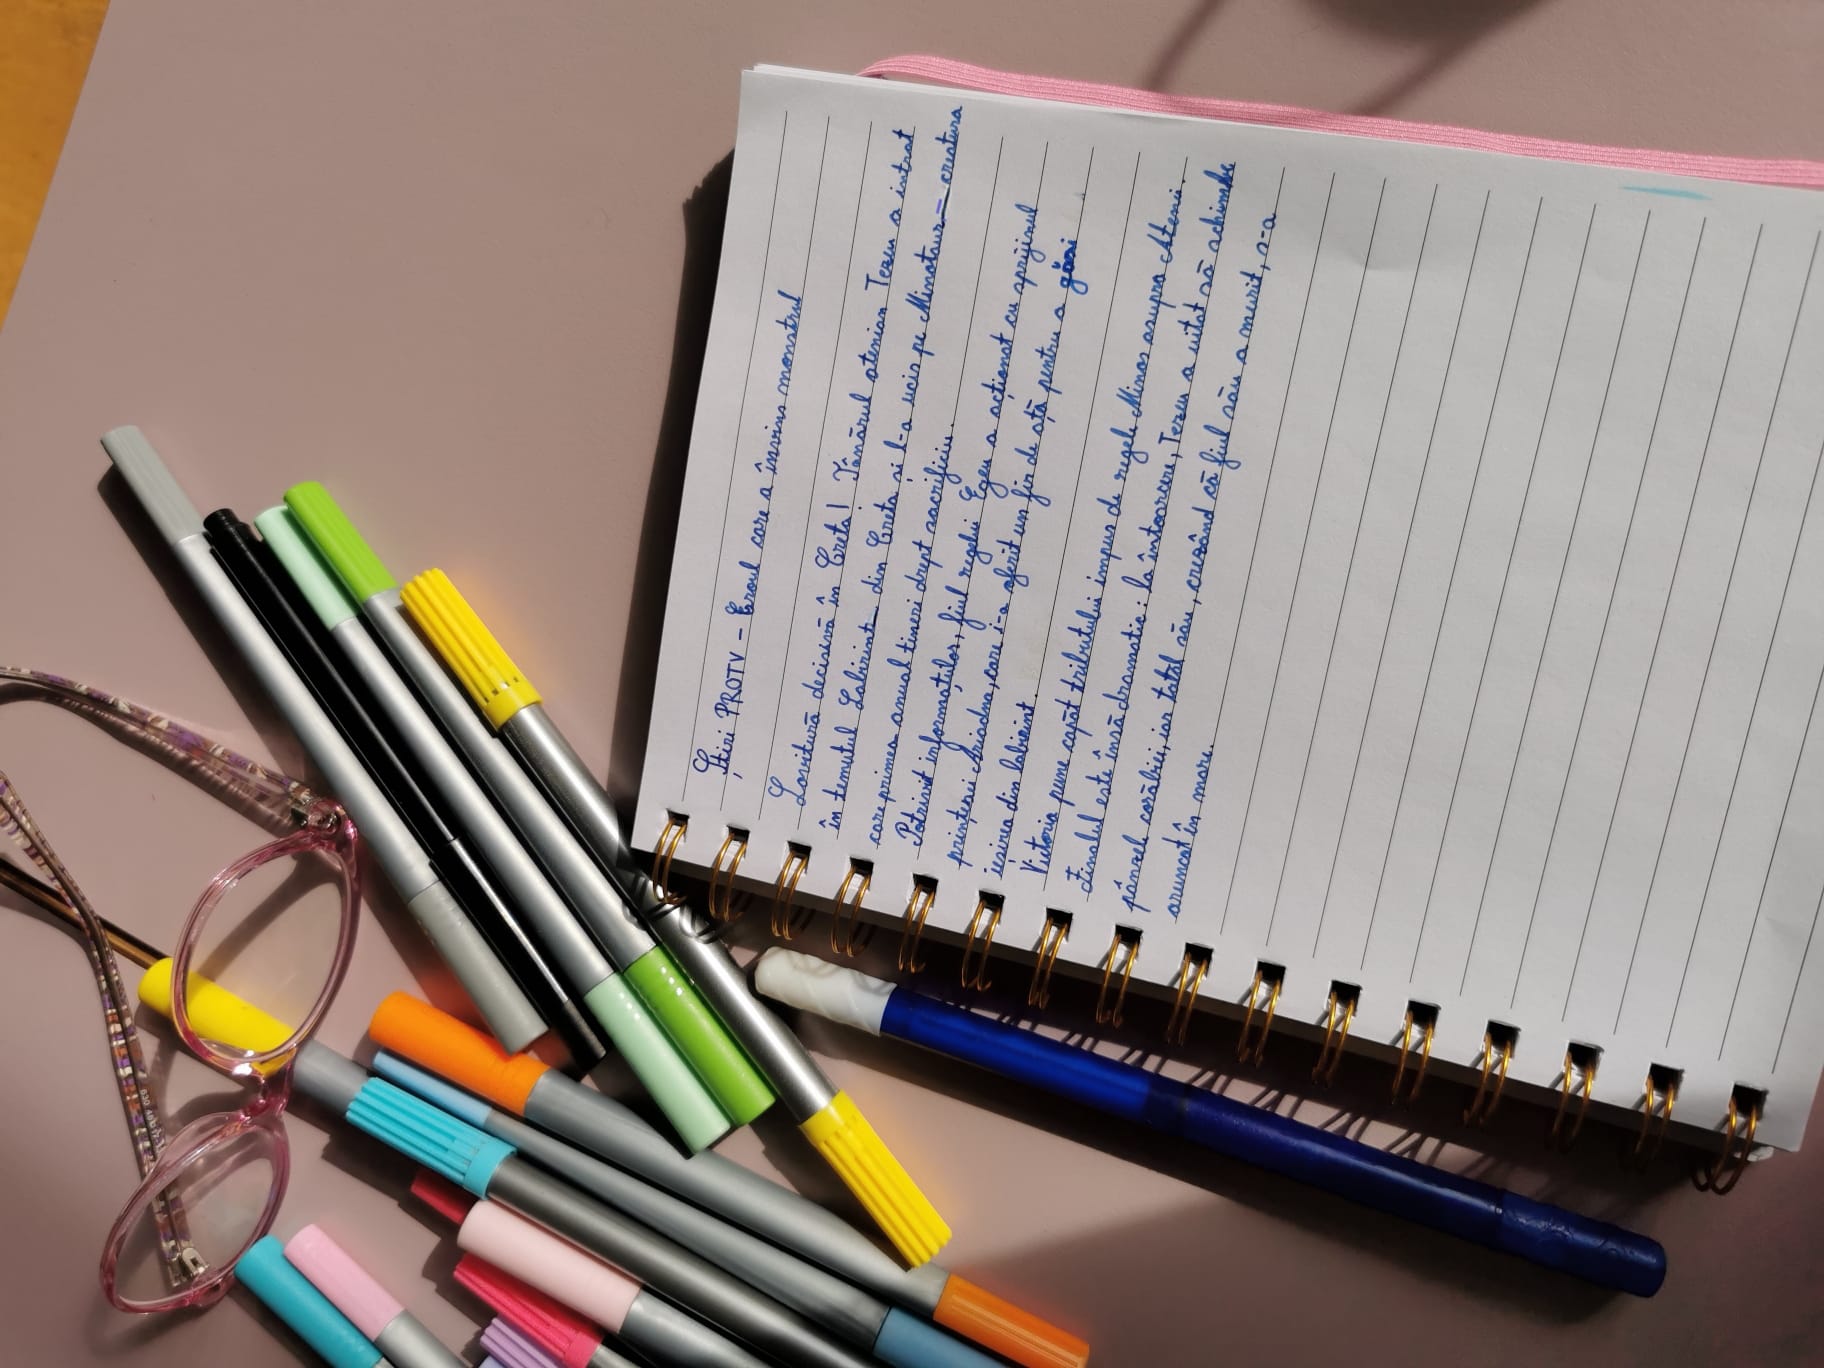 Știri PROTV - Eroul care a învins monstrul
Lovitură decisivă în Creta! Tânărul atenian Tezeu a intrat
în temutul Labirint din Creta și l-a ucis pe Minotaur - creatura
care primea anual tineri drept sacrificiu.
Potrivit informațiilor, fiul regelui Egeu a acționat cu sprijinul
prințesei Ariadna, care i-a oferit un fir de ață pentru a găsi
ieșirea din labirint.
Victoria pune capăt tributului impus de regele Minos asupra Atenei.
Finalul este însă dramatic: la întoarcere, Tezeu a uitat să schimbe
pânzele corăbiei, iar tatăl său, crezând că fiul său a murit, s-a
aruncat în mare.